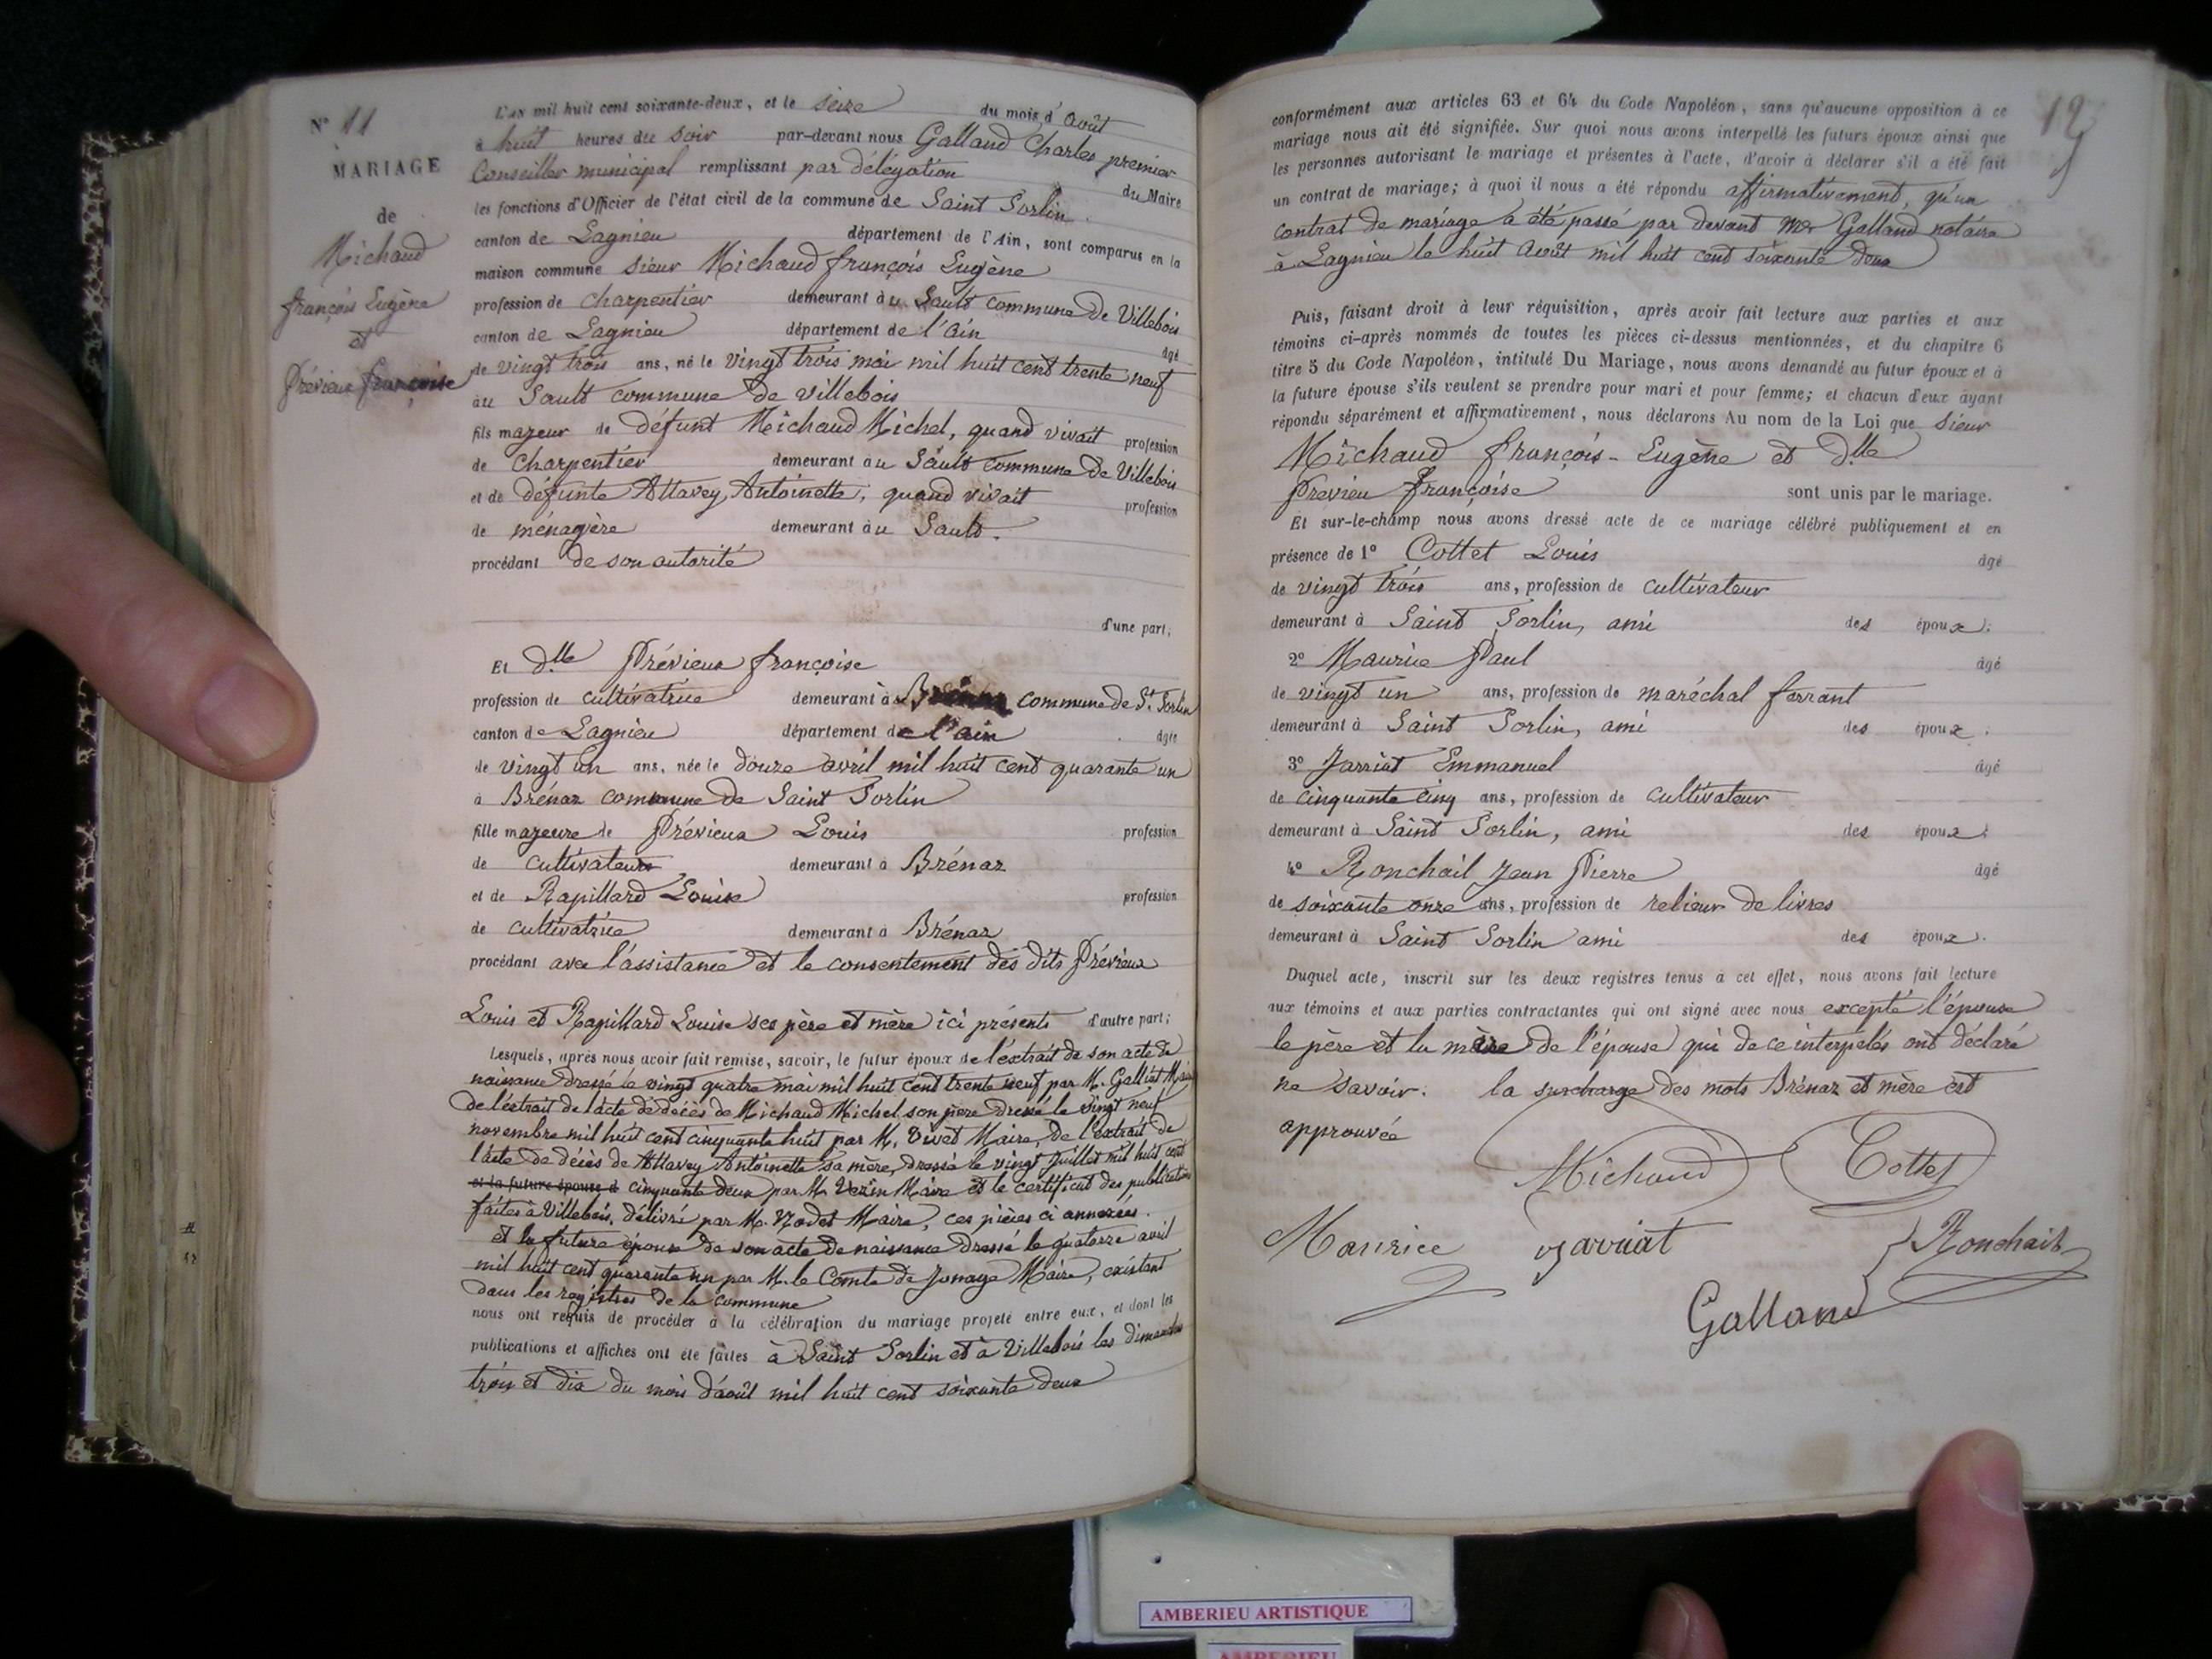 N° 11
MARIAGE
de
Michaud
françois Eugène
et
Prévieux françoise
L'AN mil huit cent soixante-deux, et le seize du mois d'août
à huit heures du soir par-devant nous Galland Charles premier
Conseiller municipal remplissant par délégation du Maire
les fonctions d'Officier de l'état civil de la commune de Saint Sorlin
canton de Lagnieu département de l'Ain, sont comparus en la
maison commune sieur Michaud françois Eugène
profession de charpentier demeurant au Sault commune de Villebois
canton de Lagnieu département de l'ain âgé
de vingt trois ans, né le vingt trois mai mil huit cent trente neuf
au Sault commune de Villebois
fils majeur de défunt Michaud Michel, quand vivait profession
de charpentier demeurant au Sault commune de Villebois
et de défunte Attavey Antoinette, quand vivait profession
de ménagère demeurant au Sault.
procédant de son autorité
d'une part;
Et dlle Prévieux françoise
profession de cultivatrice demeurant à Brénaz commune de St. Sorlin
canton de Lagnieu département de l'ain âgée
de vingt un ans, née le douze avril mil huit cent quarante un
à Brénaz commune de Saint Sorlin
fille majeure de Prévieux Louis profession
de cultivateur demeurant à Brénaz
et de Rapillard Louise profession
de cultivatrice demeurant à Brénaz
procédant avec l'assistance et le consentement des dits Prévieux
Louis et Rapillard Louise ses père et mère ici présents d'autre part;
Lesquels, après nous avoir fait remise, savoir, le futur époux de l'extrait de son acte de
naissance dressé le vingt quatre mai mil huit cent trente neuf par M. Galliat Maire
de l'extrait de l'acte de décès de Michaud Michel son père dressé le vingt neuf
novembre mil huit cent cinquante huit par M. Vivet Maire, de l'extrait de
l'acte de décès de Attavey Antoinette sa mère, dressé le vingt juillet mil huit cent
et la future épouse d cinquante deux par M. Vezin Maire et le certificat des publications
faites à Villebois, délivré par M. Nodet Maire, ces pièces ci annexées.
et la future épouse de son acte de naissance dressé le quatorze avril
mil huit cent quarante un par M. le Comte de Jonage Maire, existant
dans les registres de la commune
nous ont requis de procéder à la célébration du mariage projeté entre eux, et dont les
publications et affiches ont été faites à Saint Sorlin et à Villebois les dimanches
trois et dix du mois d'août mil huit cent soixante deux
12
conformément aux articles 63 et 64 du Code Napoléon, sans qu'aucune opposition à ce
mariage nous ait été signifiée. Sur quoi nous avons interpellé les futurs époux ainsi que
les personnes autorisant le mariage et présentes à l'acte, d'avoir à déclarer s'il a été fait
un contrat de mariage; à quoi il nous a été répondu affirmativement, qu'un
contrat de mariage a été passé par devant Me Galland notaire
à Lagnieu le huit août mil huit cent soixante deux
Puis, faisant droit à leur réquisition, après avoir fait lecture aux parties et aux
témoins ci-après nommés de toutes les pièces ci-dessus mentionnées, et du chapitre 6
titre 5 du Code Napoléon, intitulé Du Mariage, nous avons demandé au futur époux et à
la future épouse s'ils veulent se prendre pour mari et pour femme; et chacun d'eux ayant
répondu séparément et affirmativement, nous déclarons Au nom de la Loi que sieur
Michaud françois-Eugène et dlle
Prévieu françoise sont unis par le mariage.
Et sur-le-champ nous avons dressé acte de ce mariage célébré publiquement et en
présence de 1° Cottet Louis âgé
de vingt trois ans, profession de cultivateur
demeurant à Saint Sorlin, ami des époux.
2° Maurice Paul âgé
de vingt un ans, profession de maréchal ferrant
demeurant à Saint Sorlin, ami des époux.
3° Jarriat Emmanuel âgé
de cinquante cinq ans, profession de cultivateur
demeurant à Saint Sorlin, ami des époux.
4° Ronchail Jean Pierre âgé
de soixante onze ans, profession de relieur de livres
demeurant à Saint Sorlin ami des époux.
Duquel acte, inscrit sur les deux registres tenus à cet effet, nous avons fait lecture
aux témoins et aux parties contractantes qui ont signé avec nous excepté l'épouse
le père et la mère de l'épouse qui de ce interpelés ont déclaré
ne savoir. la surcharge des mots Brénaz et mère est
approuvée
Michaud Cottet
Maurice Jarriat Ronchail
Galland
AMBERIEU ARTISTIQUE
AMBERIEU